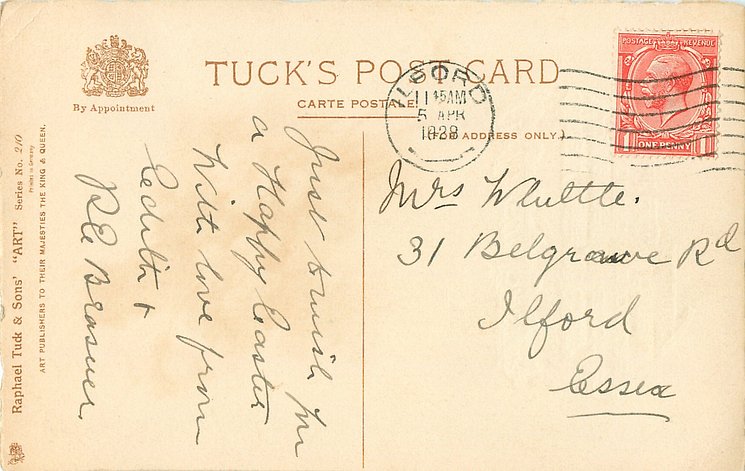 By Appointment
TUCK'S POST CARD
CARTE POSTALE
(FOR ADDRESS ONLY.)
ILFORD
11 45AM
5 APR
1928
POSTAGE REVENUE
1 ONE PENNY 1
Raphael Tuck & Sons' "ART" Series No. 210
Printed in Germany
ART PUBLISHERS TO THEIR MAJESTIES THE KING & QUEEN.
Just to wish you
a Happy Easter
With love from
Edith &
Mrs Whittle.
31 Belgrave Rd
Ilford
Essex